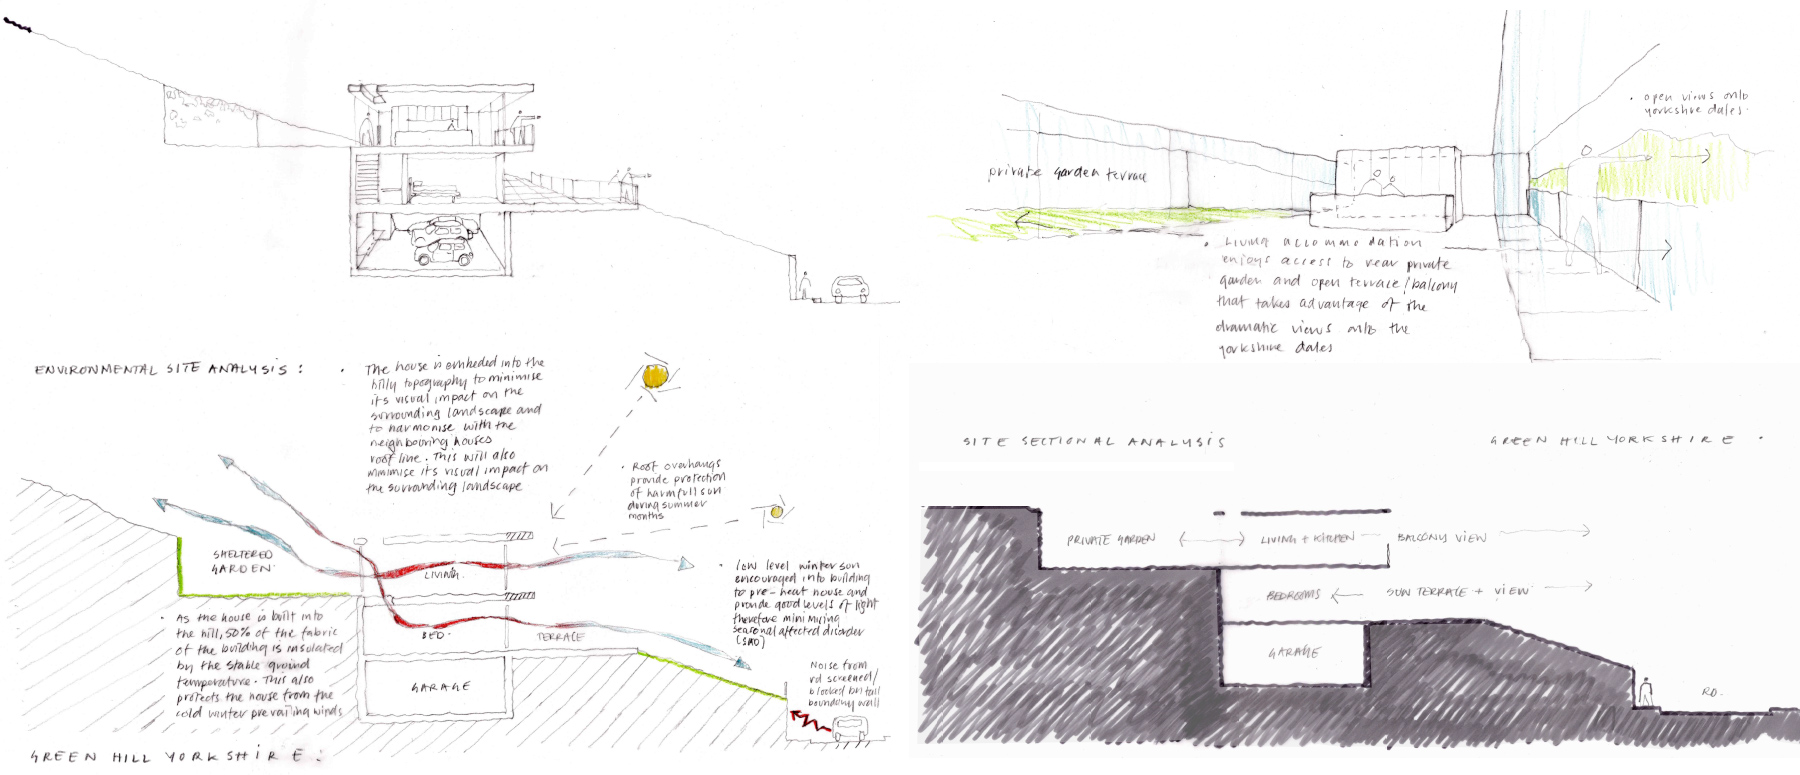 • open views onto
yorkshire dales.
private garden terrace
• Living accommodation
enjoys access to rear private
garden and open terrace/balcony
that takes advantage of the
dramatic views onto the
yorkshire dales
ENVIRONMENTAL SITE ANALYSIS:
• The house is embeded into the
hilly topography to minimise
its visual impact on the
surrounding landscape and
to harmonise with the
neighbouring houses
roof line. This will also
minimise its visual impact on
the surrounding landscape
• Roof overhangs
provide protection
of harmfull sun
during summer
months
SHELTERED
GARDEN.
LIVING.
BED.
TERRACE
GARAGE
• Low level winter sun
encouraged into building
to pre-heat house and
provide good levels of light
therefore minimising
seasonal affected disorder
(SAD)
• As the house is built into
the hill, 50% of the fabric
of the building is insulated
by the stable ground
temperature. This also
protects the house from the
cold winter prevailing winds
Noise from
rd screened/
blocked by tall
boundary wall
GREEN HILL YORKSHIRE:
SITE SECTIONAL ANALYSIS
GREEN HILL YORKSHIRE.
PRIVATE GARDEN
LIVING + KITCHEN
BALCONY VIEW
BEDROOMS
SUN TERRACE + VIEW
GARAGE
RD.